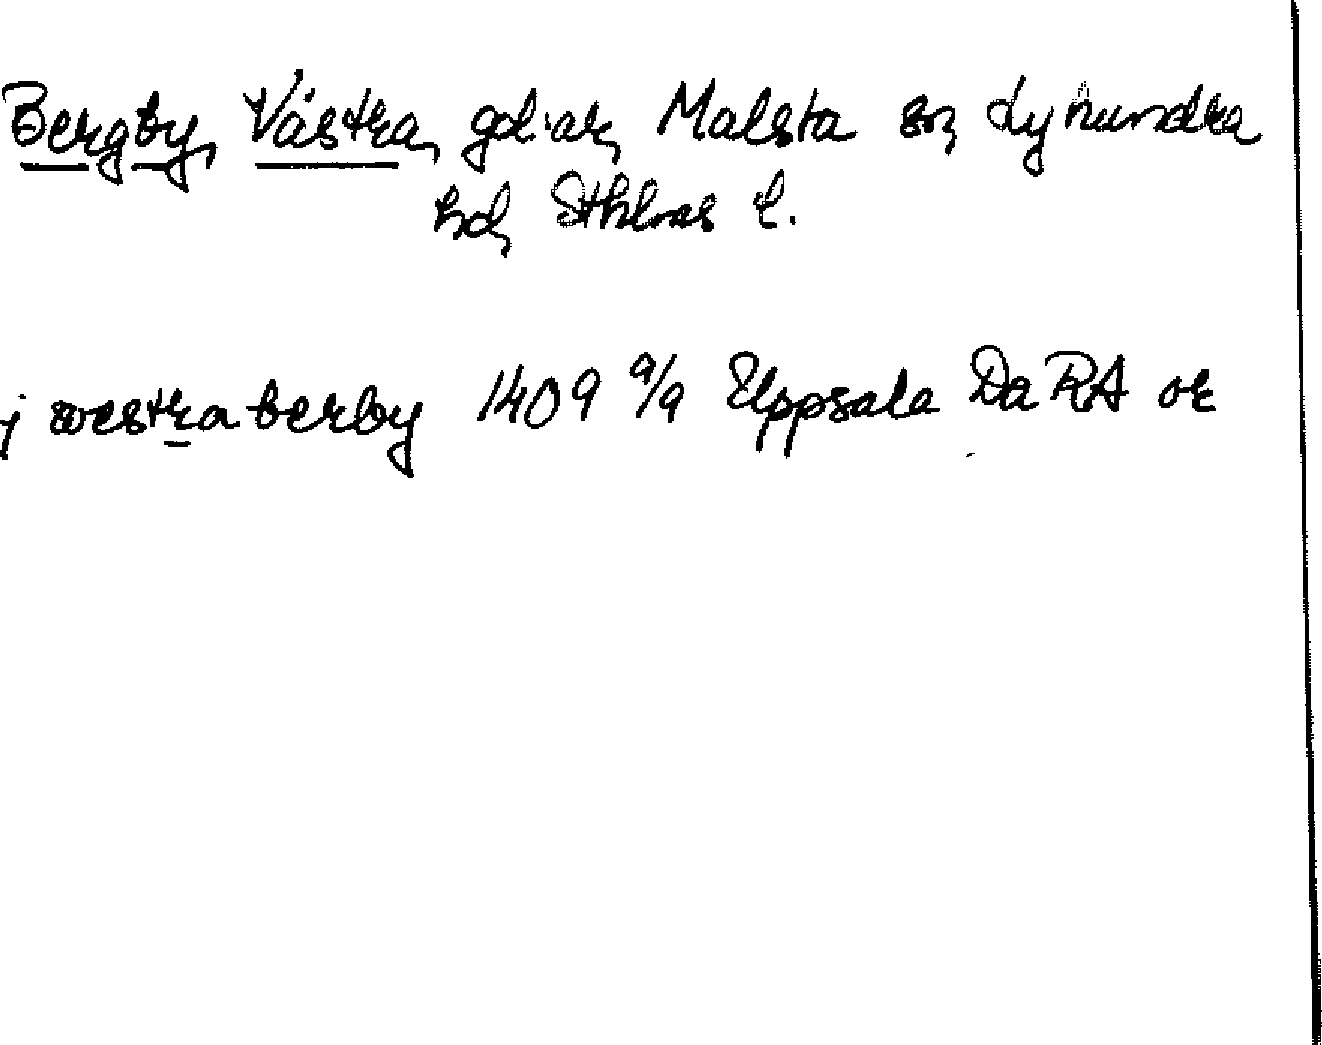 Bergby, Västra, gd·ar, Malsta sn, Lyhundra
hd, Sthlms l.
j westra berby 1409 9/9 Uppsala DaRA or